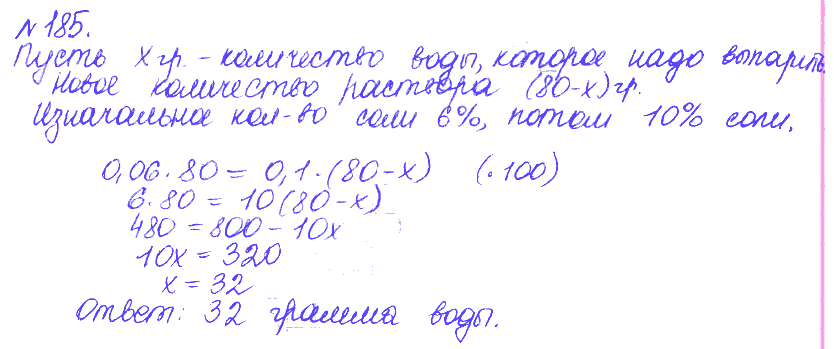 №185.
Пусть x гр. - количество воды, которое надо выпарить.
Новое количество раствора (80-x) гр.
Изначальное кол-во соли 6%, потом 10% соли.
0,06·80 = 0,1·(80-x) (·100)
6·80 = 10(80-x)
480 = 800 - 10x
10x = 320
x = 32
Ответ: 32 грамма воды.